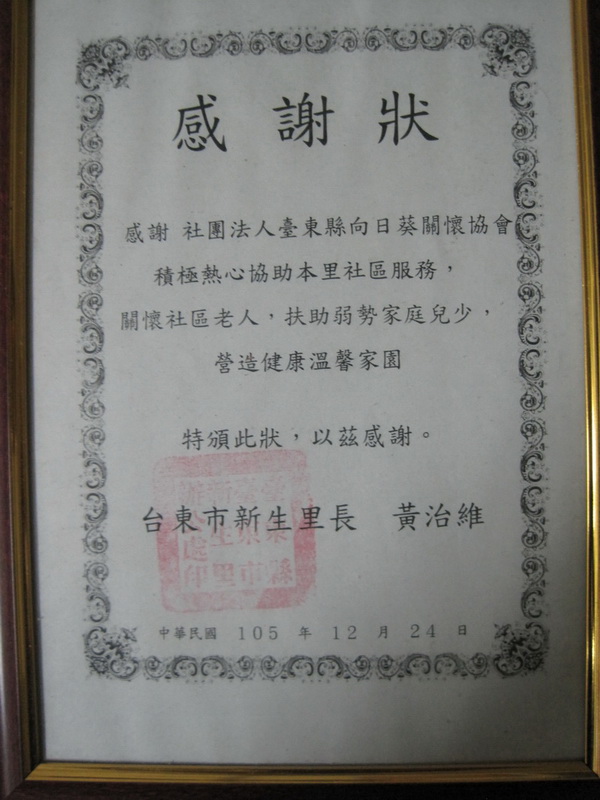 感謝狀
感謝 社團法人臺東縣向日葵關懷協會
積極熱心協助本里社區服務，
關懷社區老人，扶助弱勢家庭兒少，
營造健康溫馨家園
特頒此狀，以茲感謝。
台東市新生里長 黃治維
臺東縣
臺東市
新生里
辦公處印
中華民國 105 年 12 月 24 日